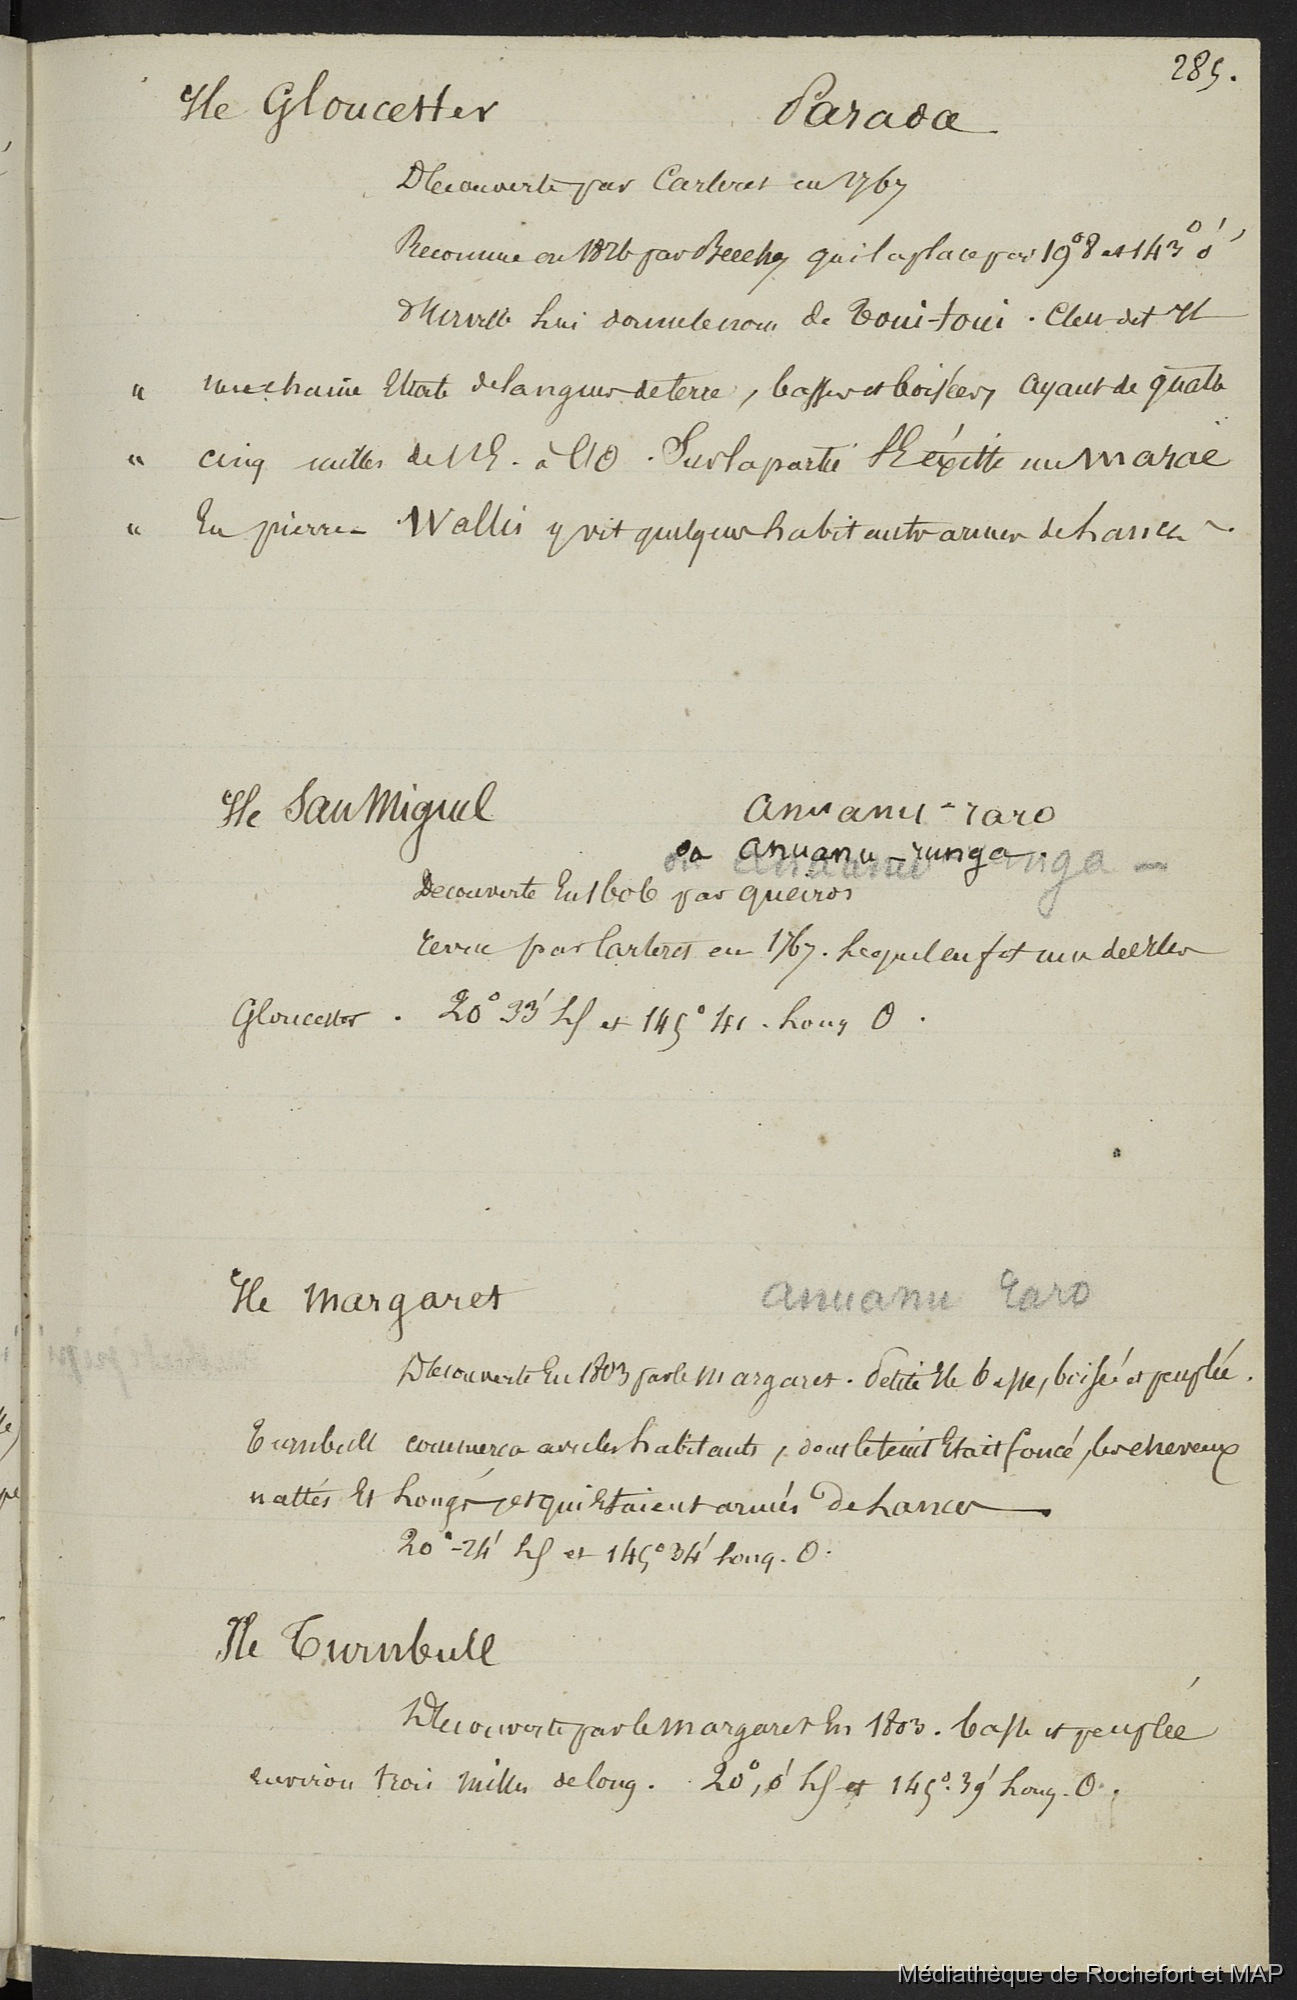 285.
Ile Gloucester Paraoa
Découverte par Carteret en 1767
Reconnue en 1826 par Beechey qui la place par 19° 8 et 143° 0'
d'Urville lui donne le nom de Toui-toui. C'en est
" une chaine Etroite de langues de terre, basses et boisées, ayant de quatre
" cinq milles de l'E. à l'O. Sur la partie SE éxiste un marae
" En pierre - Wallis y vit quelques habitants armés de lances.
Ile San Miguel Anuanu-raro
ou Anuanu-runga.
Découverte En 1606 par Queiros
revue par Carteret en 1767. Lequel en fit une des Iles
Gloucester. 20° 33' LS et 145° 41. Long O.
Ile Margaret Anuanu Raro
Découverte En 1803 par le Margaret. Petite Ile basse, boisée et peuplée.
Turnbull commerca avec les habitants, dont le teint Etait foncé, les cheveux
nattés Et Longs, et qui Etaient armés de Lances
20°-24' LS et 145° 34' Long. O.
Ile Turnbull
Découverte par le Margaret En 1803. basse et peuplée
environ trois milles de long. 20°, 0' LS et 145°. 39' Long. O.
Médiathèque de Rochefort et MAP